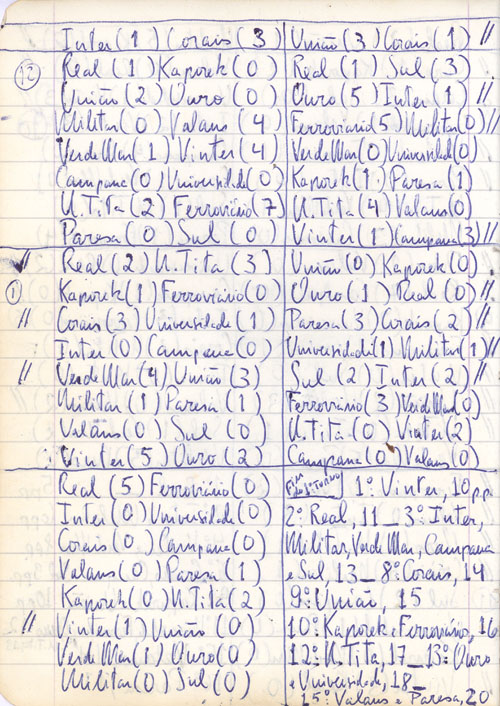 Inter (1) Corais (3)
(12) Real (1) Kaporek (0)
União (2) Ouro (0)
Militar (0) Valans (4)
Verde Mar (1) Vinter (4)
Campana (0) Universidade (0)
U.Tita (2) Ferroviário (7)
Paresa (0) Sul (0)
União (3) Corais (1) //
Real (1) Sul (3)
Ouro (5) Inter (1) //
Ferroviário (5) Militar (0) //
Verde Mar (0) Universidade (0)
Kaporek (1) Paresa (1)
U.Tita (4) Valans (0)
Vinter (1) Campana (3) //
Real (2) U.Tita (3)
(1) Kaporek (1) Ferroviário (0)
// Corais (3) Universidade (1)
Inter (0) Campana (0)
// Verde Mar (4) União (3)
Militar (1) Paresa (1)
Valans (0) Sul (0)
Vinter (5) Ouro (2)
União (0) Kaporek (0)
Ouro (1) Real (0) //
Paresa (3) Corais (2) //
Universidade (1) Militar (1) //
Sul (2) Inter (2) //
Ferroviário (3) Verde Mar (0)
U.Tita (0) Vinter (2)
Campana (0) Valans (0)
Real (5) Ferroviário (0)
Inter (0) Universidade (0)
Corais (0) Campana (0)
Valans (0) Paresa (1)
Kaporek (0) U.Tita (2)
// Vinter (1) União (0)
Verde Mar (1) Ouro (0)
Militar (0) Sul (0)
Fim do 1º Turno 1º Vinter, 10 p.p.
2º Real, 11 _ 3º Inter,
Militar, Verde Mar, Campana
e Sul, 13 _ 8º Corais, 14
9º União, 15
10º Kaporek e Ferroviário, 16
12º U.Tita, 17 _ 13º Ouro
e Universidade, 18 _
15º Valans e Paresa, 20